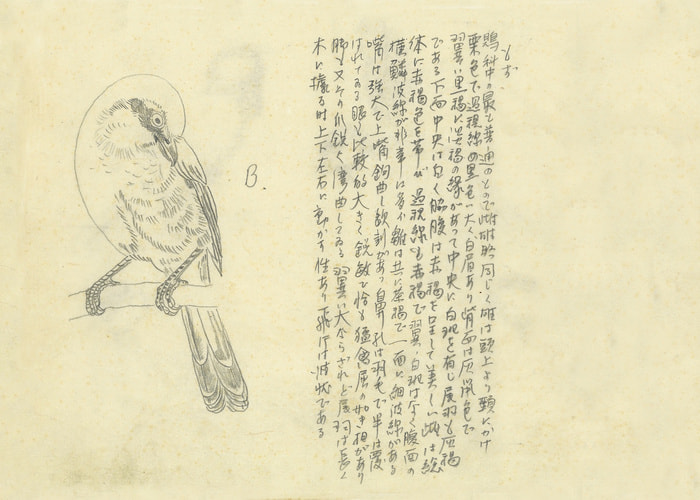 もず
鵙科中の最も普通のもので雌雄略同じく雄は頭上より頸にかけ
栗色で過視線の黒色い大く白眉あり背面は灰鼠色で
翼い黒褐に淡褐の縁があって中央に白斑を有し尾羽も灰褐
である下面中央は白く脇腹は赤褐を呈して美しい雌は総
体に赤褐色を帯び過視線も赤褐で翼に白斑なく腹面の
横鱗波線が非常に多い雛は共に茶褐で一面に細波線がある
嘴は強大で上嘴鉤曲し欠刻があり鼻孔は羽毛で半は覆
はれてゐる眼も比較的大きく鋭敏で恰も猛禽属の如き相があり
脚も又その爪鋭く湾曲してゐる翼い大ならざれど尾羽は長く
木に據る時上下左右に動かす性あり飛行は波状である
B.